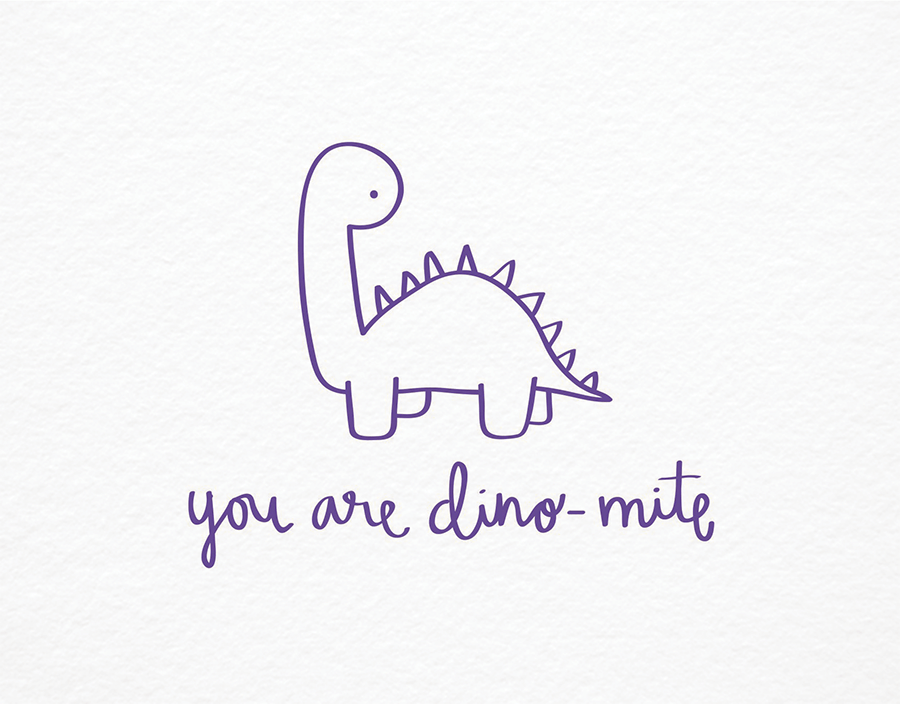 you are dino-mite